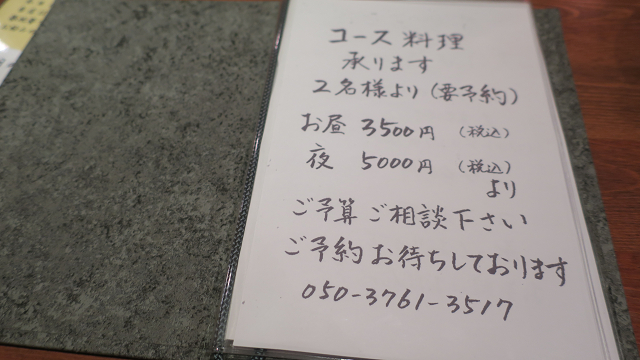 コース料理
承ります
2名様より(要予約)
お昼 3500円 (税込)
夜 5000円 (税込)
より
ご予算ご相談下さい
ご予約お待ちしております
050-3761-3517